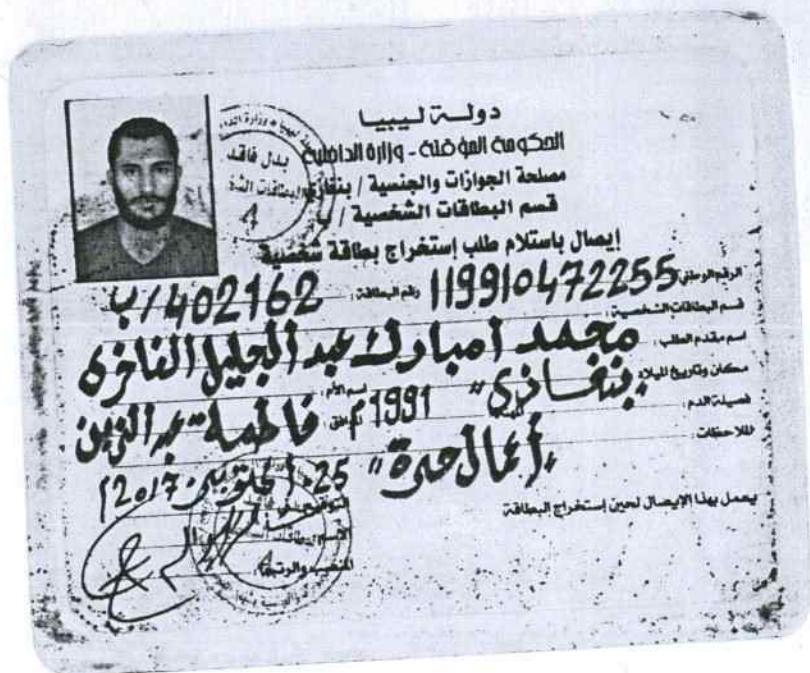 دولة ليبيا
الحكومة المؤقتة - وزارة الداخلية
مصلحة الجوازات والجنسية / بنغازي
قسم البطاقات الشخصية / ب
إيصال باستلام طلب إستخراج بطاقة شخصية
الرقم الوطني 119910472255 رقم البطاقة : ب/402162
قسم البطاقات الشخصية :
اسم مقدم الطلب : محمد امبارك عبد الجليل الفاخري
مكان وتاريخ الميلاد "بنغازي" 1991م اسم الأم : فاطمة
فصيلة الدم :
الملاحظات : "أعمال حرة" 25 أكتوبر 2017م
يعمل بهذا الإيصال لحين إستخراج البطاقة
التوقيع
بدل فاقد
4